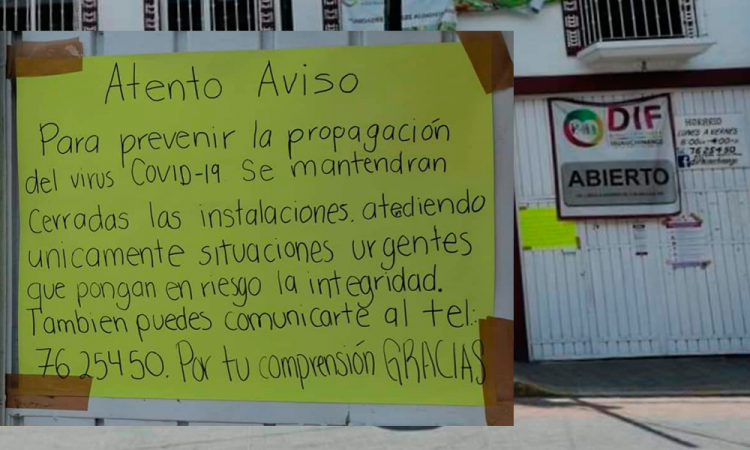 Atento Aviso
Para prevenir la propagación
del virus COVID-19 Se mantendran
Cerradas las instalaciones. atediendo
unicamente situaciones urgentes
que pongan en riesgo la integridad.
Tambien puedes comunicarte al tel:
7625450. Por tu comprensión GRACIAS
DIF
HUAUCHINANGO
ABIERTO
HORARIO
LUNES A VIERNES
8:00 4:00
Tel. 7625450